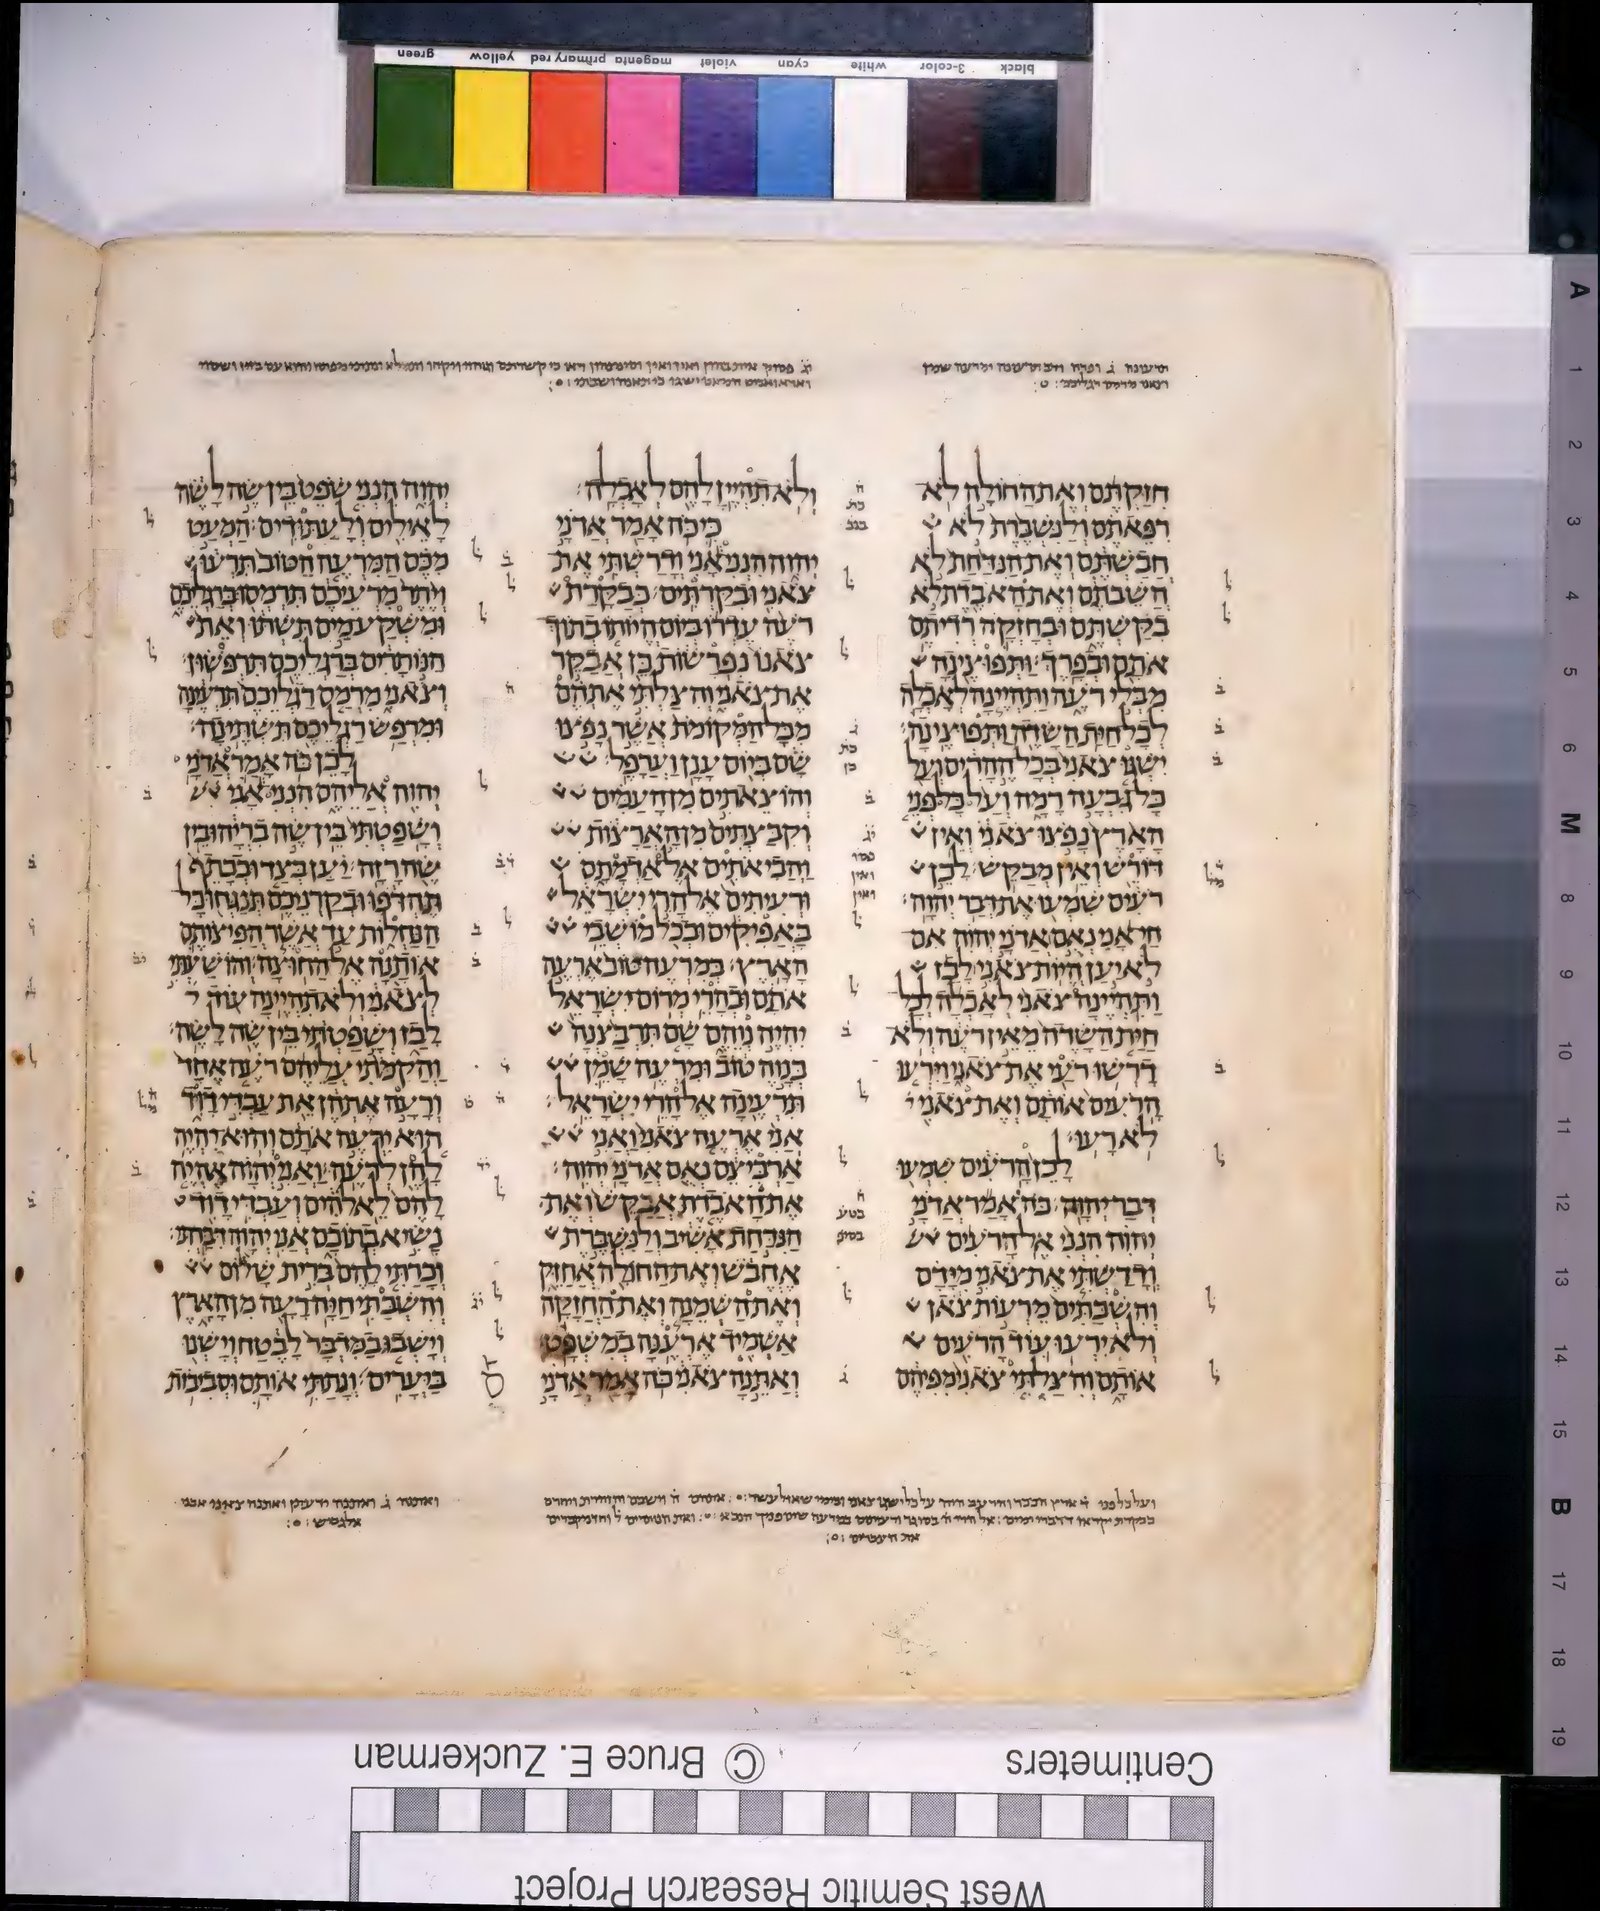 green yellow primary red magenta violet cyan white 3-color black
חזקתם ואת החולה לא
רפאתם ולנשברת לא
חבשתם ואת הנדחת לא
השבתם ואת האבדת לא
בקשתם ובחזקה רדיתם
אתם ובפרך׃ ותפוצינה
מבלי רעה ותהיינה לאכלה
לכל חית השדה ותפוצינה׃
ישגו צאני בכל ההרים ועל
כל גבעה רמה ועל כל פני
הארץ נפצו צאני ואין
דורש ואין מבקש׃ לכן
רעים שמעו את דבר יהוה׃
חי אני נאם אדני יהוה אם
לא יען היות צאני לבז
ותהיינה צאני לאכלה לכל
חית השדה מאין רעה ולא
דרשו רעי את צאני וירעו
הרעים אותם ואת צאני
לא רעו׃
לכן הרעים שמעו
דבר יהוה׃ כה אמר אדני
יהוה הנני אל הרעים
ודרשתי את צאני מידם
והשבתים מרעות צאן
ולא ירעו עוד הרעים
אותם והצלתי צאני מפיהם
ולא תהיין להם לאכלה׃
כי כה אמר אדני
יהוה הנני אני ודרשתי את
צאני ובקרתים׃ כבקרת
רעה עדרו ביום היותו בתוך
צאנו נפרשות כן אבקר
את צאני והצלתי אתהם
מכל המקומת אשר נפצו
שם ביום ענן וערפל׃
והוצאתים מן העמים
וקבצתים מן הארצות
והביאתים אל אדמתם
ורעיתים אל הרי ישראל
באפיקים ובכל מושבי
הארץ׃ במרעה טוב ארעה
אתם ובהרי מרום ישראל
יהיה נוהם שם תרבצנה
בנוה טוב ומרעה שמן
תרעינה אל הרי ישראל׃
אני ארעה צאני ואני
ארביצם נאם אדני יהוה׃
את האבדת אבקש ואת
הנדחת אשיב ולנשברת
אחבש ואת החולה אחזק
ואת השמנה ואת החזקה
אשמיד ארענה במשפט׃
ואתנה צאני כה אמר אדני
יהוה הנני שפט בין שה לשה
לאילים ולעתודים׃ המעט
מכם המרעה הטוב תרעו
ויתר מרעיכם תרמסו ברגליכם
ומשקע מים תשתו ואת
הנותרים ברגליכם תרפשון׃
וצאני מרמס רגליכם תרעינה
ומרפש רגליכם תשתינה׃
לכן כה אמר אדני
יהוה אליהם הנני אני
ושפטתי בין שה בריה ובין
שה רזה׃ יען בצד ובכתף
תהדפו ובקרניכם תנגחו כל
הנחלות עד אשר הפיצותם
אותנה אל החוצה׃ והושעתי
לצאני ולא תהיינה עוד
לבז ושפטתי בין שה לשה׃
והקמתי עליהם רעה אחד
ורעה אתהן את עבדי דויד
הוא ירעה אתם והוא יהיה
להן לרעה׃ ואני יהוה אהיה
להם לאלהים ועבדי דוד
נשיא בתוכם אני יהוה דברתי׃
וכרתי להם ברית שלום
והשבתי חיה רעה מן הארץ
וישבו במדבר לבטח וישנו
ביערים׃ ונתתי אותם וסביבות
Centimeters © Bruce E. Zuckerman
West Semitic Research Project